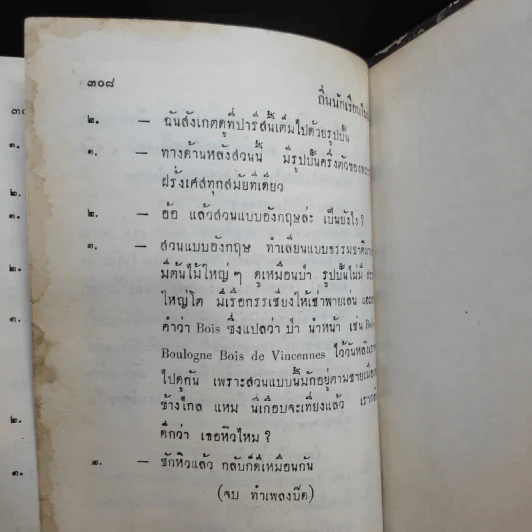 ๓๐๘
ถิ่นนักเรียนใน
๒. — ฉันสังเกตดูที่ปารีสนี้เต็มไปด้วยรูปปั้น
๑. — ทางด้านหลังสวนนี้ มีรูปปั้นครึ่งตัวของ
ฝรั่งเศสทุกสมัยทีเดียว
๒. — อ้อ แล้วสวนแบบอังกฤษล่ะ เป็นยังไง ?
๑. — สวนแบบอังกฤษ ทำเลียนแบบธรรมชาติ
มีต้นไม้ใหญ่ ๆ ดูเหมือนป่า รูปปั้นไม่มี
ใหญ่โต มีเรือกรรเชียงให้เช่าพายเล่น
คำว่า Bois ซึ่งแปลว่า ป่า นำหน้า เช่น Bois
Boulogne Bois de Vincennes ไว้วันหลัง
ไปดูกัน เพราะสวนแบบนี้มักอยู่ตามชายเมือง
ข้างไกล แหม นี่เกือบจะเที่ยงแล้ว
ดีกว่า เธอหิวไหม ?
๒. — ชักหิวแล้ว กลับก็ดีเหมือนกัน
(จบ ทำเพลงปิด)